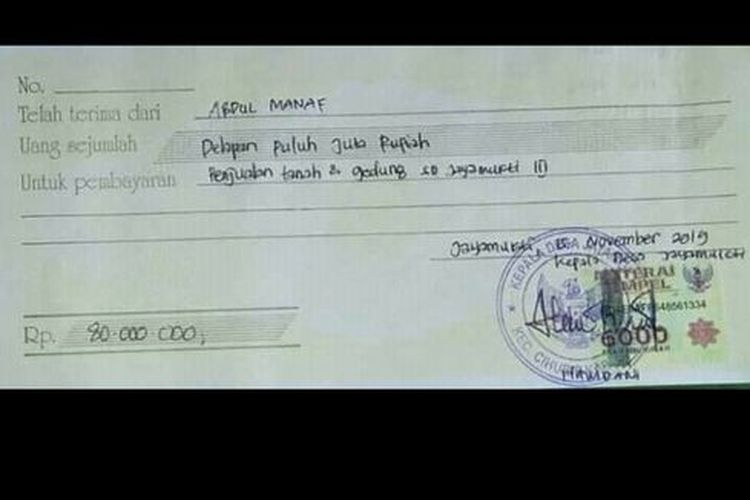 No.
Telah terima dari ABDUL MANAF
Uang sejumlah Delapan Puluh Juta Rupiah
Untuk pembayaran Penjualan tanah & gedung SD Jayamukti III
Jayamukti, November 2019
Kepala Desa Jayamukti
KEPALA DESA
METERAI
TEMPEL
6000
KEC. CIHU
Rp. 80.000.000,
HAMDANI